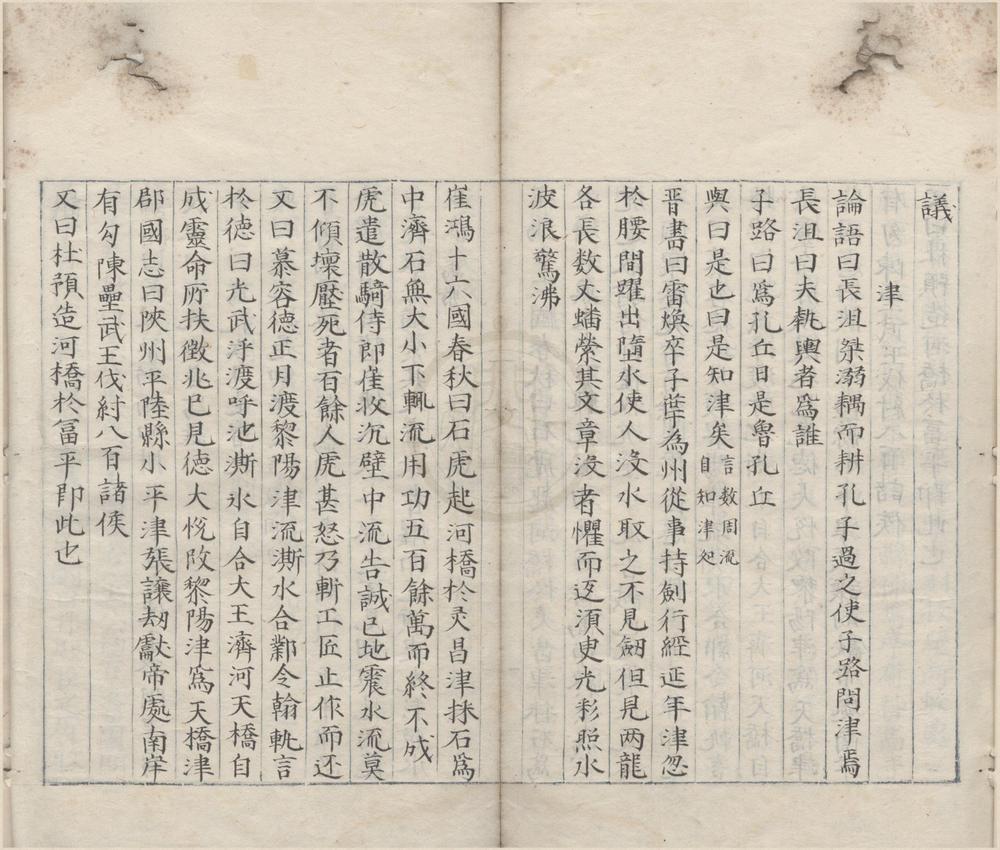 議
津
論語曰長沮桀溺耦而耕孔子過之使子路問津焉
長沮曰夫執輿者爲誰
子路曰爲孔丘曰是魯孔丘
與曰是也曰是知津矣言数周流自知津処
晋書曰雷煥卒子華為州從事持劍行經延年津忽
於腰間躍出墮水使人没水取之不見劒但見两龍
各長数丈蟠縈其文章没者懼而返須臾光彩照水
波浪驚沸
崔鴻十六國春秋曰石虎起河橋於灵昌津採石爲
中濟石無大小下輒流用功五百餘萬而終不成
虎遣散騎侍郎崔收沉壁中流告誠已地震水流莫
不傾壞壓死者百餘人虎甚怒乃斬工匠止作而还
又曰慕容德正月渡黎陽津流澌水合鄴令翰軌言
於德曰光武浮渡呼池澌氷自合大王濟河天橋自
成靈命所扶徵兆已見德大恱改黎陽津爲天橋津
郡國志曰陝州平陸縣小平津張讓刼獻帝處南岸
有勾陳壘武王伐紂八百諸侯
又曰杜預造河橋於富平即此也